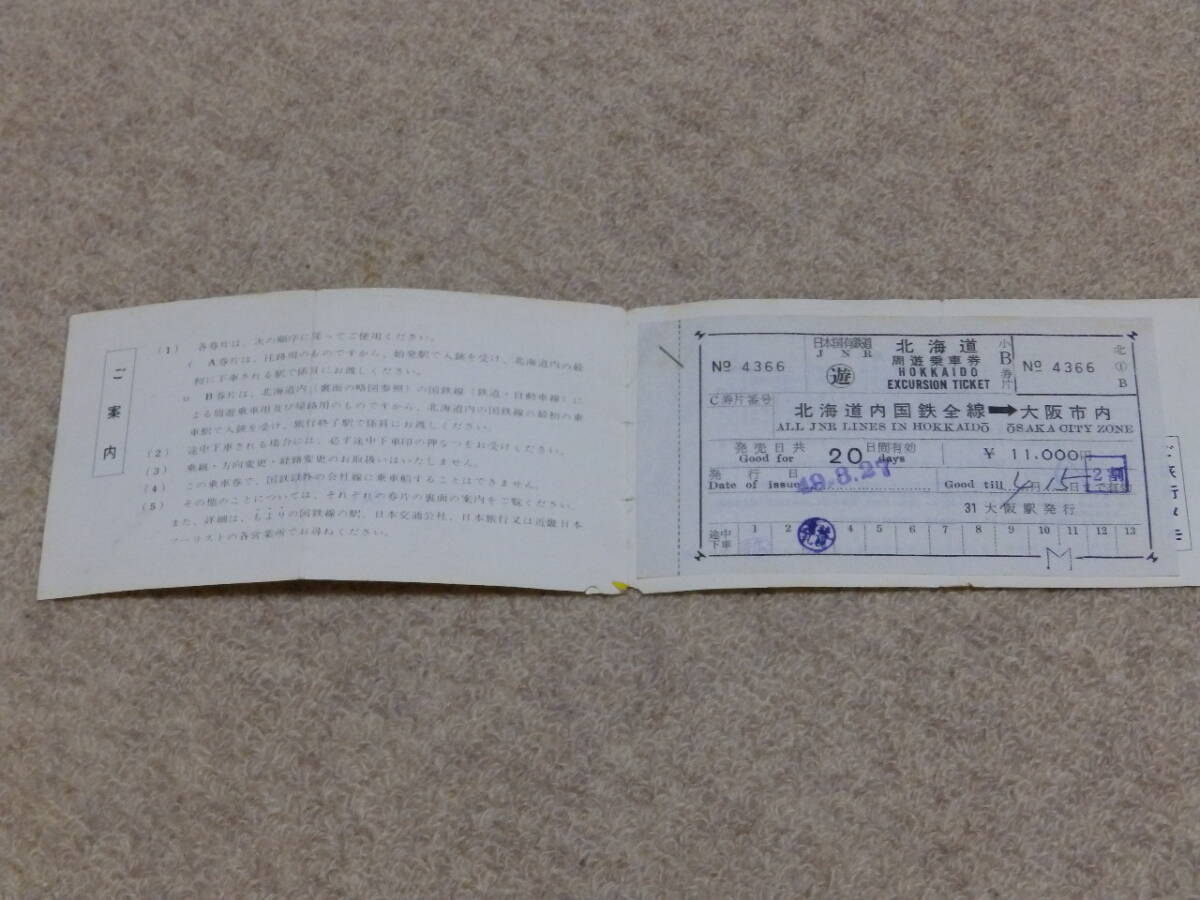 ご案内
(1) 各券片は、次の順序に従ってご使用ください。
A券片は、往路用のものですから、始発駅で入鋏を受け、北海道内の最
初に下車される駅で係員にお渡しください。
B券片は、北海道内(裏面の略図参照)の国鉄線(鉄道・自動車線)に
よる周遊乗車用及び帰路用のものですから、北海道内の国鉄線の最初の乗
車駅で入鋏を受け、旅行終了駅で係員にお渡しください。
(2) 途中下車される場合には、必ず途中下車印の押なつをお受けください。
(3) 乗越・方向変更・経路変更のお取扱いはいたしません。
(4) この乗車券で、国鉄以外の会社線に乗車船することはできません。
(5) その他のことについては、それぞれの券片の裏面の案内をご覧ください。
また、詳細は、もよりの国鉄線の駅、日本交通公社、日本旅行又は近畿日本
ツーリストの各営業所でお尋ねください。
№ 4366
日本国有鉄道
J N R
遊
北海道
周遊乗車券
HOKKAIDO
EXCURSION TICKET
小
B
券片
№ 4366
北
①
B
C券片番号
北海道内国鉄全線➡大阪市内
ALL JNR LINES IN HOKKAIDŌ ŌSAKA CITY ZONE
発売日共 20 日間有効
Good for days
¥ 11.000円
発行日
Date of issue 49.8.27
Good till 15日まで有効
2割
31 大阪駅発行
途中下車 1 2 4 5 6 7 8 9 10 11 12 13
ご旅行メモ